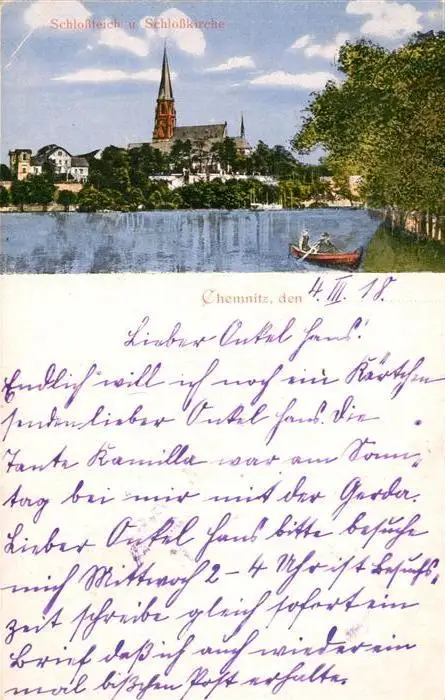 Schloßteich u Schloßkirche
Chemnitz, den 4. III. 18.
Lieber Onkel Hans!
Endlich will ich noch ein Kärtchen
senden lieber Onkel Hans. Die
Tante Kamilla war am Sonn-
tag bei mir mit der Gerda.
Lieber Onkel Hans bitte besuche
mich Mittwoch 2-4 Uhr ist Besuchs-
zeit schreibe gleich sofort ein
Brief daß ich auch wieder ein
mal bißchen Post erhalte.